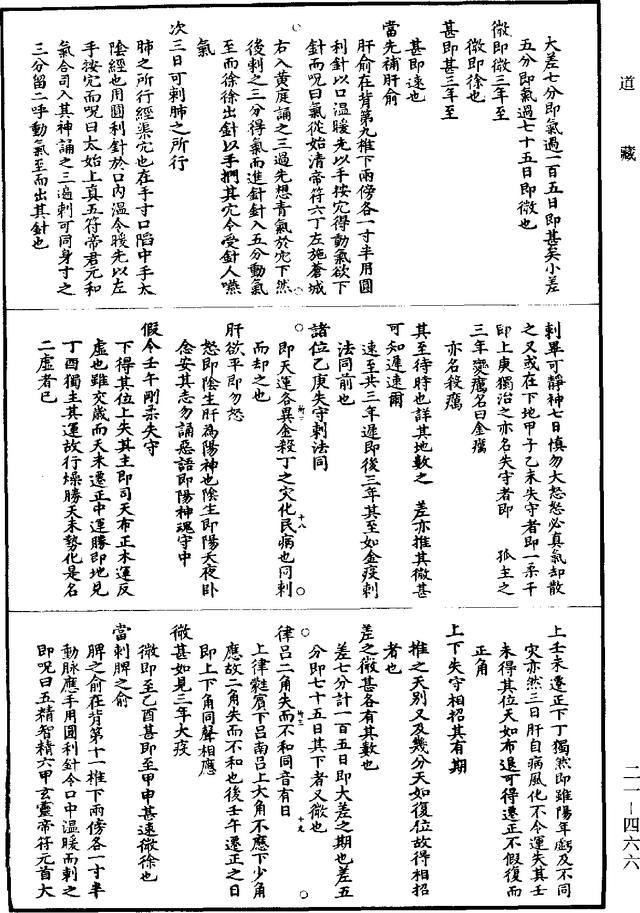 道藏
大差七分即氣過一百五日即甚矣小差
五分即氣過七十五日即微也
微即微三年至
微即徐也
甚即甚三年至
甚即速也
當先補肝俞
肝俞在背第九椎下兩傍各一寸半用圓
利針以口温暖先以手按穴得動氣欲下
針而呪曰氣從始清帝符六丁左施蒼城
右入黄庭誦之三過先想青氣於穴下然
後刺之三分得氣而進針針入五分動氣
至而徐徐出針以手捫其穴令受針人嚥
氣
次三日可刺肺之所行
肺之所行經渠穴也在手寸口陷中手太
陰經也用圓利針於口内温令暖先以左
手按穴而呪曰太始上真五符帝君元和
氣合司入其神誦之三遍刺可同身寸之
三分留二呼動氣至而出其針也
刺畢可靜神七日慎勿大怒怒必真氣却散
之又或在下地甲子乙未失守者即一柔干
即上庚獨治之亦名失守者即 孤主之
三年變癘名曰金癘
亦名殺癘
其至待時也詳其地數之 差亦推其微甚
可知遲速爾
速至共三年遲即後三年其至如金疫刺
法同前也
諸位乙庚失守刺法同
即天運各異金殺丁之灾化民病也同刺
而却之也
肝欲平即勿怒
怒即陰生肝為陽神也陰生即陽天夜卧
念安其志勿誦惡語即陽神魂守中
假令壬午剛柔失守
下得其位上失其主即司天布正木運反
虚也雖交歲而天未遷正中運勝即地見
丁酉獨主其運故行燥勝天未勢化是名
二虚者已
上壬未遷正下丁獨然即雖陽年虧及不同
灾亦然三日肝自病風化不令運失其壬
未得其位天如布退可得遷正不假復而
正角
上下失守相招其有期
推之天别又及幾分天如復位故得相招
者也
差之微甚各有其數也
差七分計一百五日即大差之期也差五
分即七十五日其下者又微也
律吕二角失而不和同音有日
上律蕤賓下吕南吕上大角不應下少角
應故二角失而不和也後壬午遷正之日
即上下角同聲相應
微甚如見三年大疫
微即至乙酉甚即至甲申甚速微徐也
當刺脾之俞
脾之俞在背第十一椎下兩傍各一寸半
動脉應手用圓利針令口中温暖而刺之
即呪曰五精智精六甲玄靈帝符元首大
二一-四六六